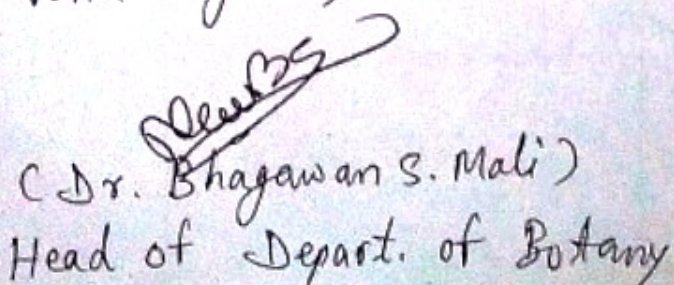 (Dr. Bhagawan S. Mali)
Head of Depart. of Botany